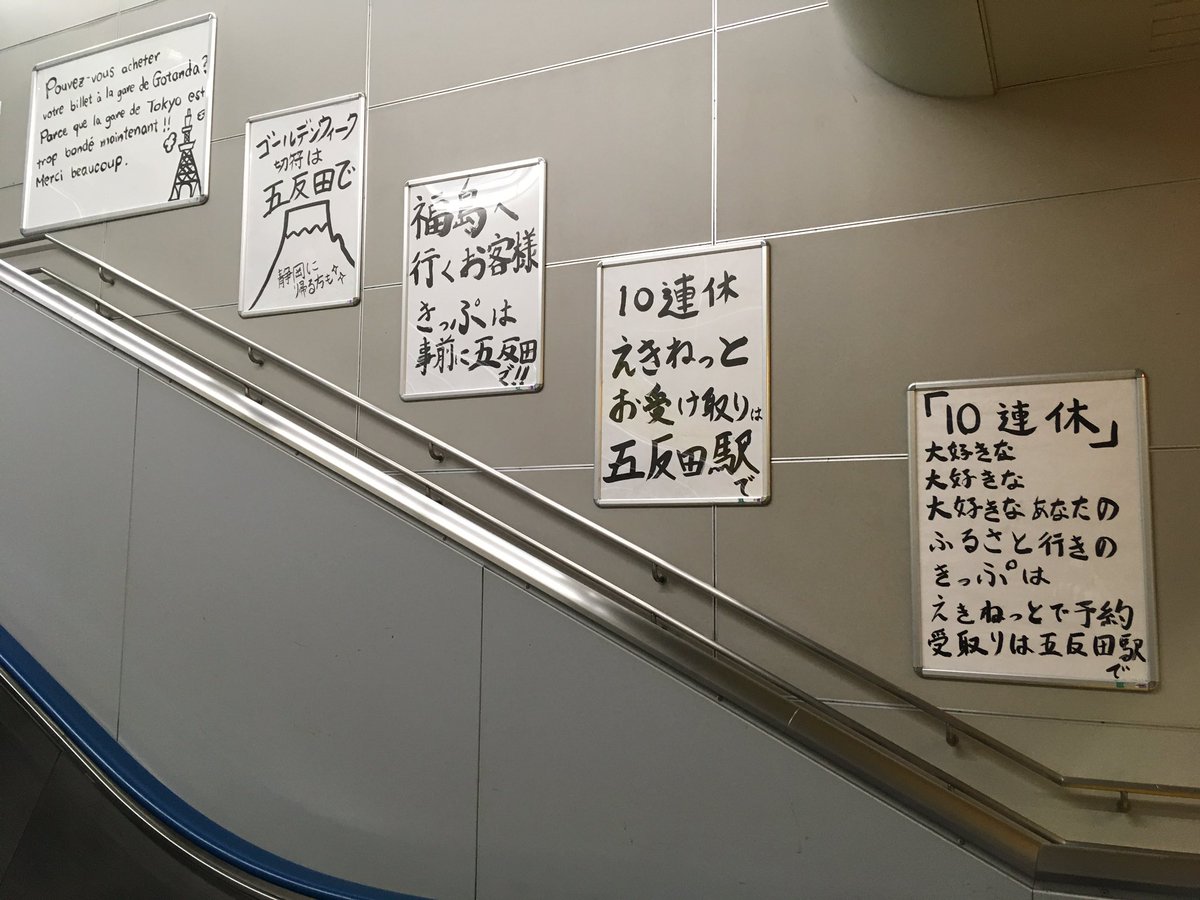 Pouvez-vous acheter
votre billet à la gare de Gotanda?
Parce que la gare de Tokyo est
trop bondé maintenant!!
Merci beaucoup.
ゴールデンウィーク
切符は
五反田で
静岡に
帰る方も
福島へ
行くお客様
きっぷは
事前に五反田
で!!
10連休
えきねっと
お受け取りは
五反田駅
で
「10連休」
大好きな
大好きな
大好きなあなたの
ふるさと行きの
きっぷは
えきねっとで予約
受取りは五反田駅
で